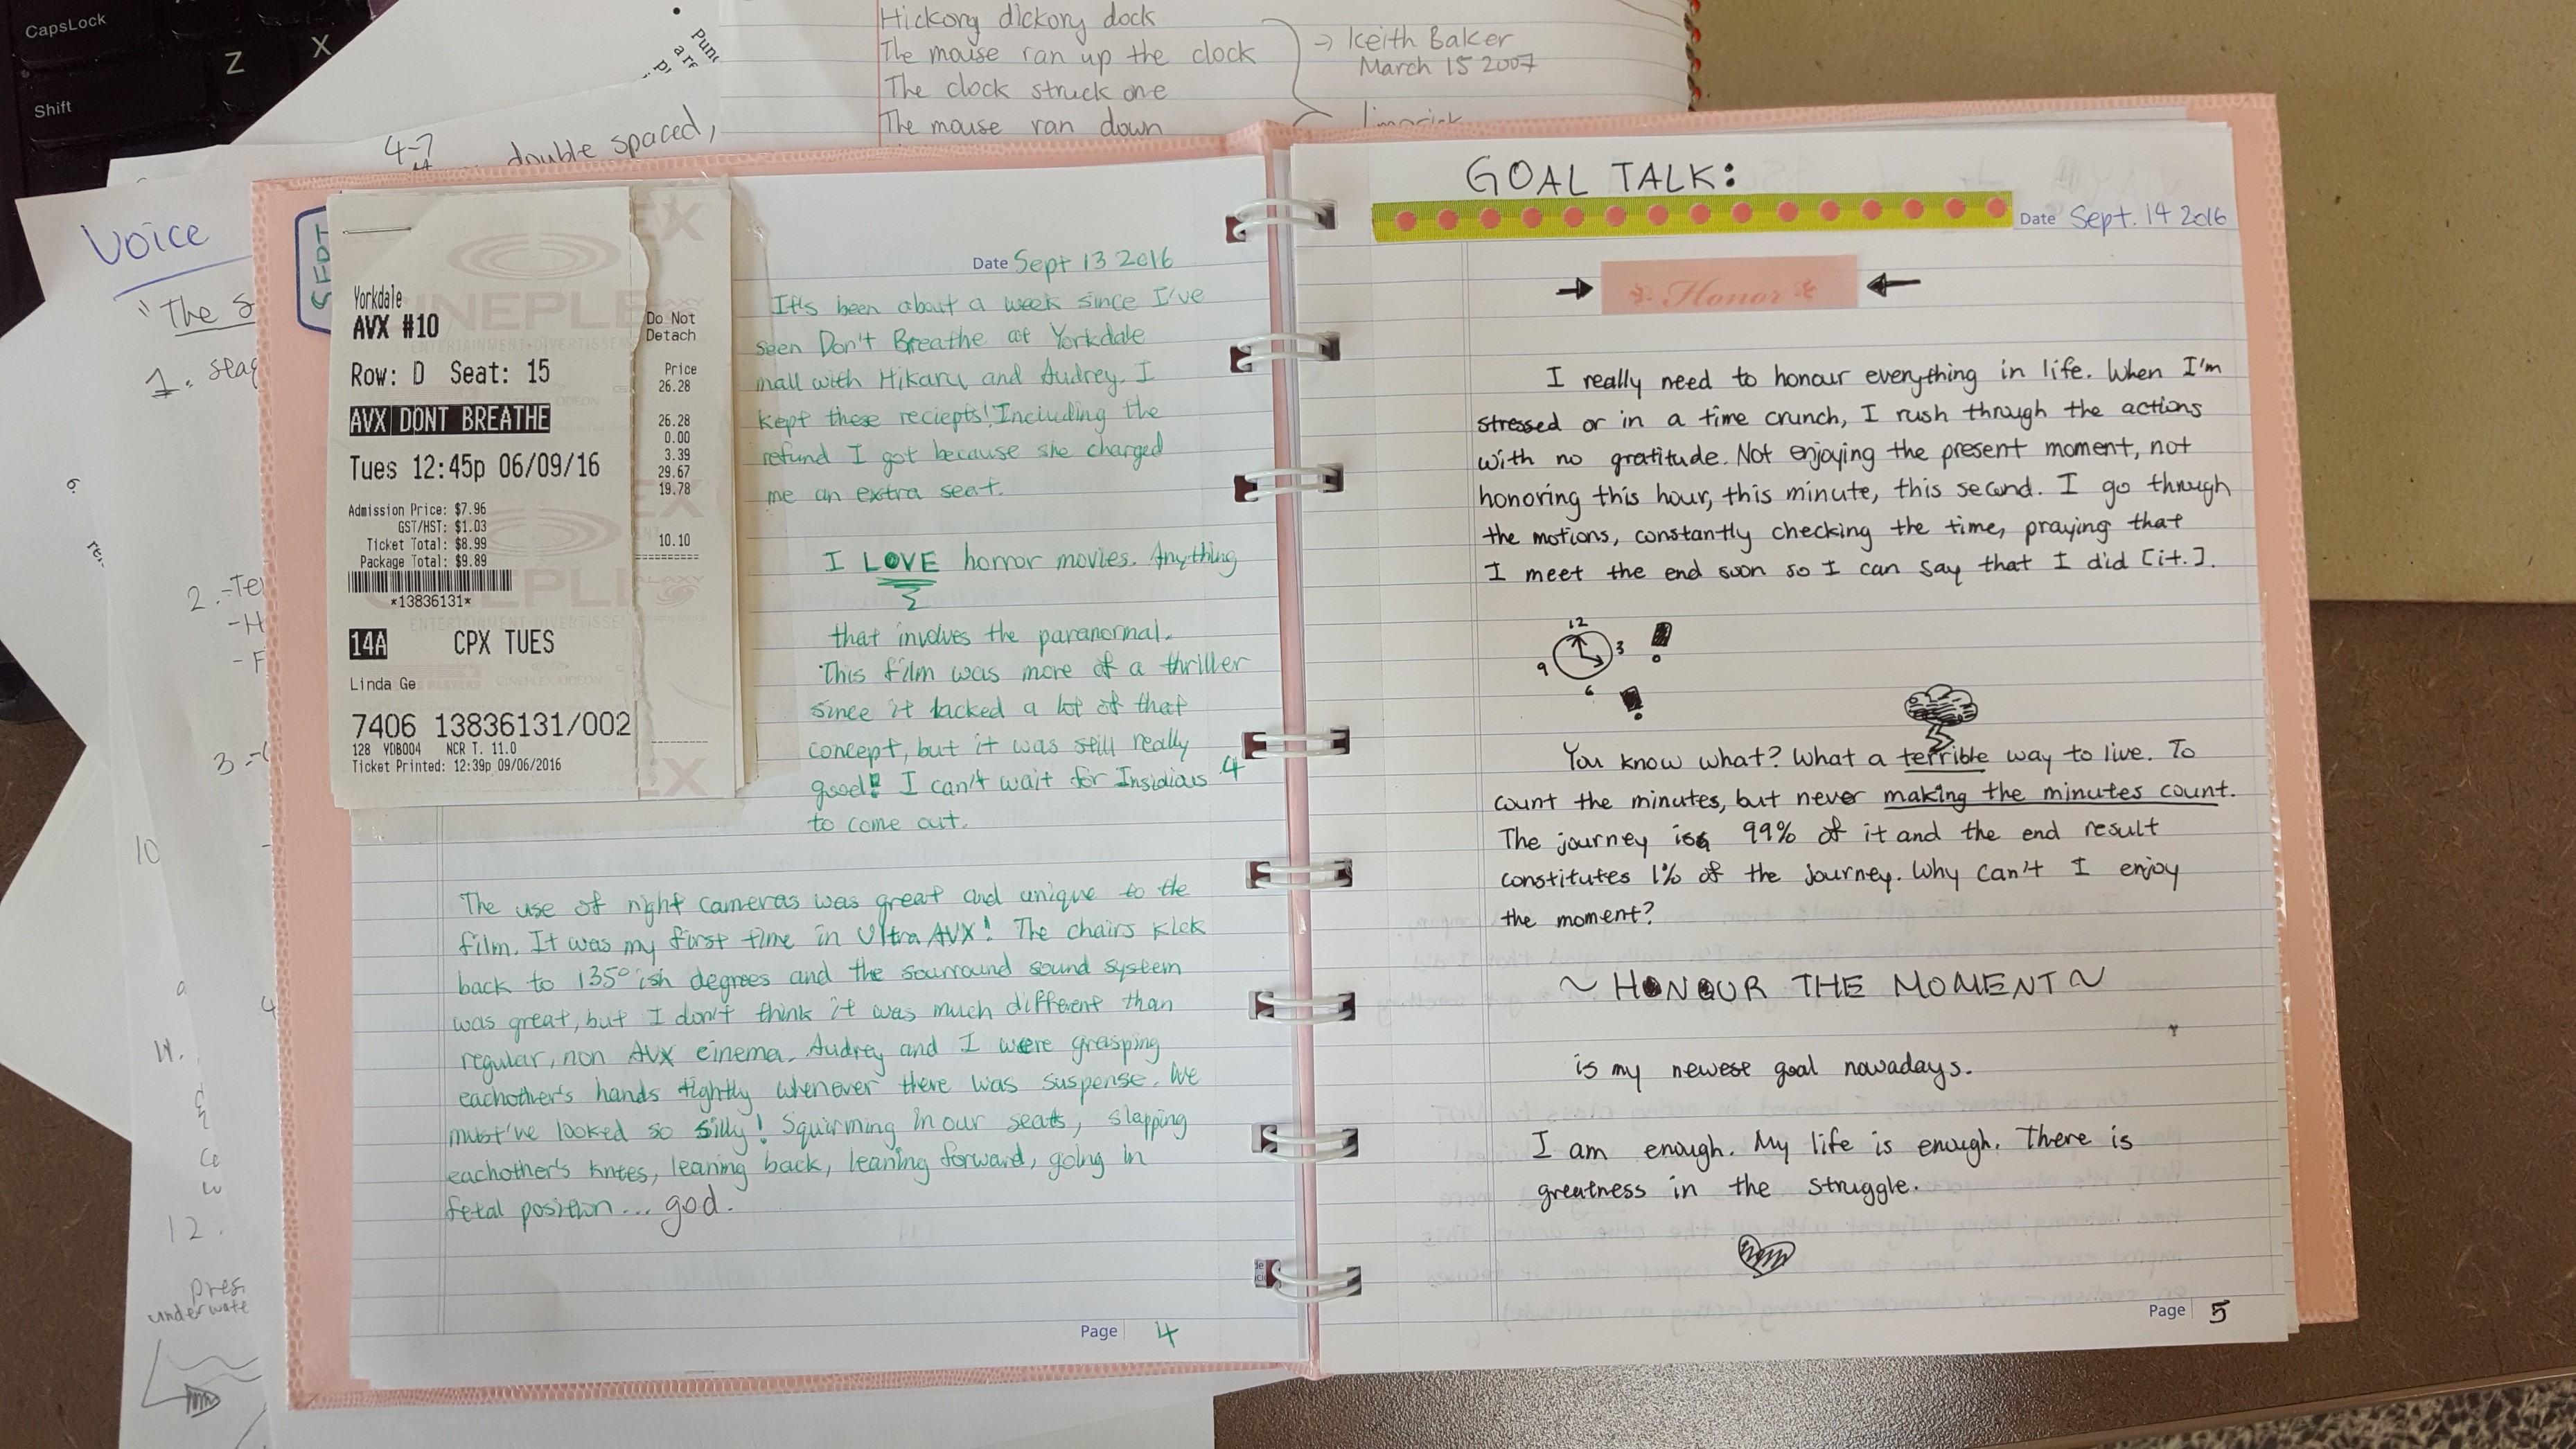 CapsLock
Z X
Shift
Hickory dickory dock
The mouse ran up the clock
The clock struck one
The mouse ran down
→ Keith Baker
March 15 2007
limerick
4-7
double spaced,
Voice
"The S
1.
2.
3.
10
11.
12.
underwate
SEPT
Yorkdale
AVX #10
Row: D Seat: 15
AVX DONT BREATHE
Tues 12:45p 06/09/16
Admission Price: $7.96
GST/HST: $1.03
Ticket Total: $8.99
Package Total: $9.89
*13836131*
14A CPX TUES
Linda Ge
7406 13836131/002
128 YDB004 NCR T. 11.0
Ticket Printed: 12:39p 09/06/2016
Do Not
Detach
Price
26.28
26.28
0.00
3.39
29.67
19.78
10.10
==========
Date Sept 13 2016
It's been about a week since I've
seen Don't Breathe at Yorkdale
mall with Hikaru, and Audrey. I
kept these reciepts! Including the
refund I got because she charged
me an extra seat.
I LOVE horror movies. Anything
that involves the paranormal.
This film was more of a thriller
since it lacked a lot of that
concept, but it was still really
good! I can't wait for Insidious 4
to come out.
The use of night cameras was great and unique to the
film. It was my first time in Ultra AVX! The chairs kick
back to 135° ish degrees and the sourround sound system
was great, but I don't think it was much different than
regular, non AVX cinema. Audrey and I were grasping
eachother's hands tightly whenever there was suspense. We
must've looked so silly! Squirming in our seats, slapping
eachother's knees, leaning back, leaning forward, going in
fetal position... god.
Page 4
GOAL TALK:
Date Sept. 14 2016
→ Honor ←
I really need to honour everything in life. When I'm
stressed or in a time crunch, I rush through the actions
with no gratitude. Not enjoying the present moment, not
honoring this hour, this minute, this second. I go through
the motions, constantly checking the time, praying that
I meet the end soon so I can say that I did [it.].
12
9 3 !
6 !
You know what? What a terrible way to live. To
count the minutes, but never making the minutes count.
The journey is 99% of it and the end result
constitutes 1% of the journey. Why can't I enjoy
the moment?
~ HONOUR THE MOMENT ~
is my newest goal nowadays.
I am enough. My life is enough. There is
greatness in the struggle.
Page 5